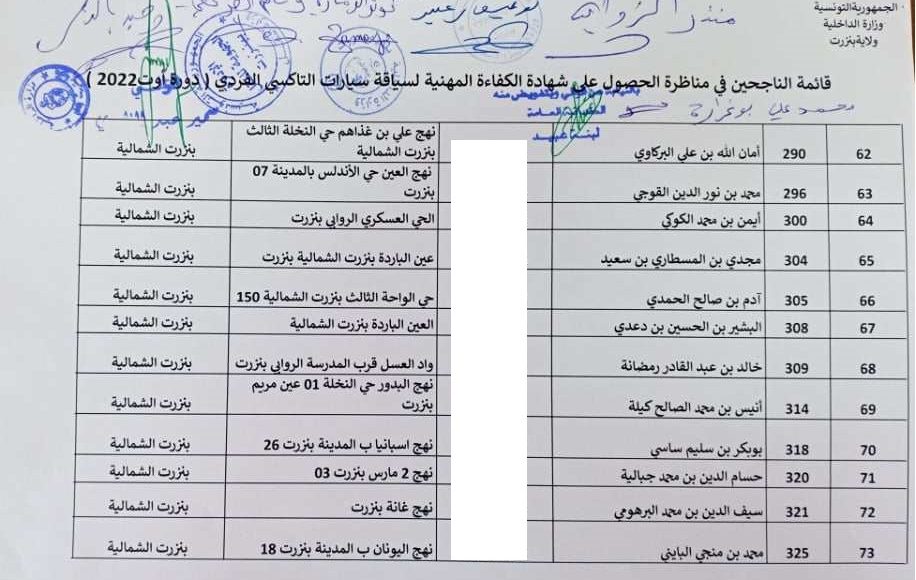 الجمهورية التونسية
وزارة الداخلية
ولاية بنزرت
قائمة الناجحين في مناظرة الحصول على شهادة الكفاءة المهنية لسياقة سيارات التاكسي الفردي ( دورة أوت2022 )
محمد علي بوغزارة
62 290 أمان الله بن علي البركاوي نهج علي بن غذاهم حي النخلة الثالث بنزرت الشمالية
بنزرت الشمالية
63 296 محمد بن نور الدين القوجي نهج العين حي الأندلس بالمدينة 07 بنزرت الشمالية
بنزرت
64 300 أيمن بن محمد الكوكي الحي العسكري الروابي بنزرت بنزرت الشمالية
65 304 مجدي بن المسطاري بن سعيد عين الباردة بنزرت الشمالية بنزرت بنزرت الشمالية
66 305 آدم بن صالح الحمدي حي الواحة الثالث بنزرت الشمالية 150 بنزرت الشمالية
67 308 البشير بن الحسين بن دعدي العين الباردة بنزرت الشمالية بنزرت الشمالية
68 309 خالد بن عبد القادر رمضانة واد العسل قرب المدرسة الروابي بنزرت بنزرت الشمالية
69 314 أنيس بن محمد الصالح كيلة نهج البدور حي النخلة 01 عين مريم بنزرت الشمالية
بنزرت
70 318 بوبكر بن سليم ساسي نهج اسبانيا ب المدينة بنزرت 26 بنزرت الشمالية
71 320 حسام الدين بن محمد جبالية نهج 2 مارس بنزرت 03 بنزرت الشمالية
72 321 سيف الدين بن محمد البرهومي نهج غانة بنزرت بنزرت الشمالية
73 325 محمد بن منجي البايني نهج اليونان ب المدينة بنزرت 18 بنزرت الشمالية